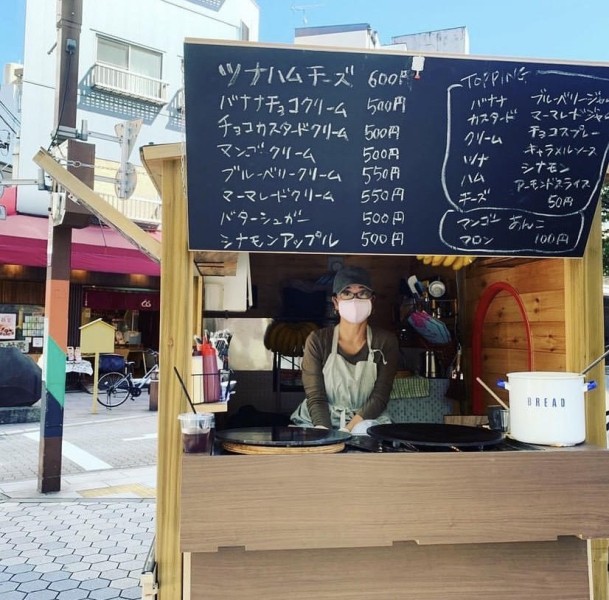 ツナハムチーズ 600円
バナナチョコクリーム 500円
チョコカスタードクリーム 500円
マンゴクリーム 500円
ブルーベリークリーム 550円
マーマレードクリーム 550円
バターシュガー 500円
シナモンアップル 500円
TOPPING
バナナ
カスタード
クリーム
ツナ
ハム
チーズ
ブルーベリージャム
マーマレードジャム
チョコスプレー
キャラメルソース
シナモン
アーモンドスライス
50円
マンゴー あんこ
マロン 100円
BREAD